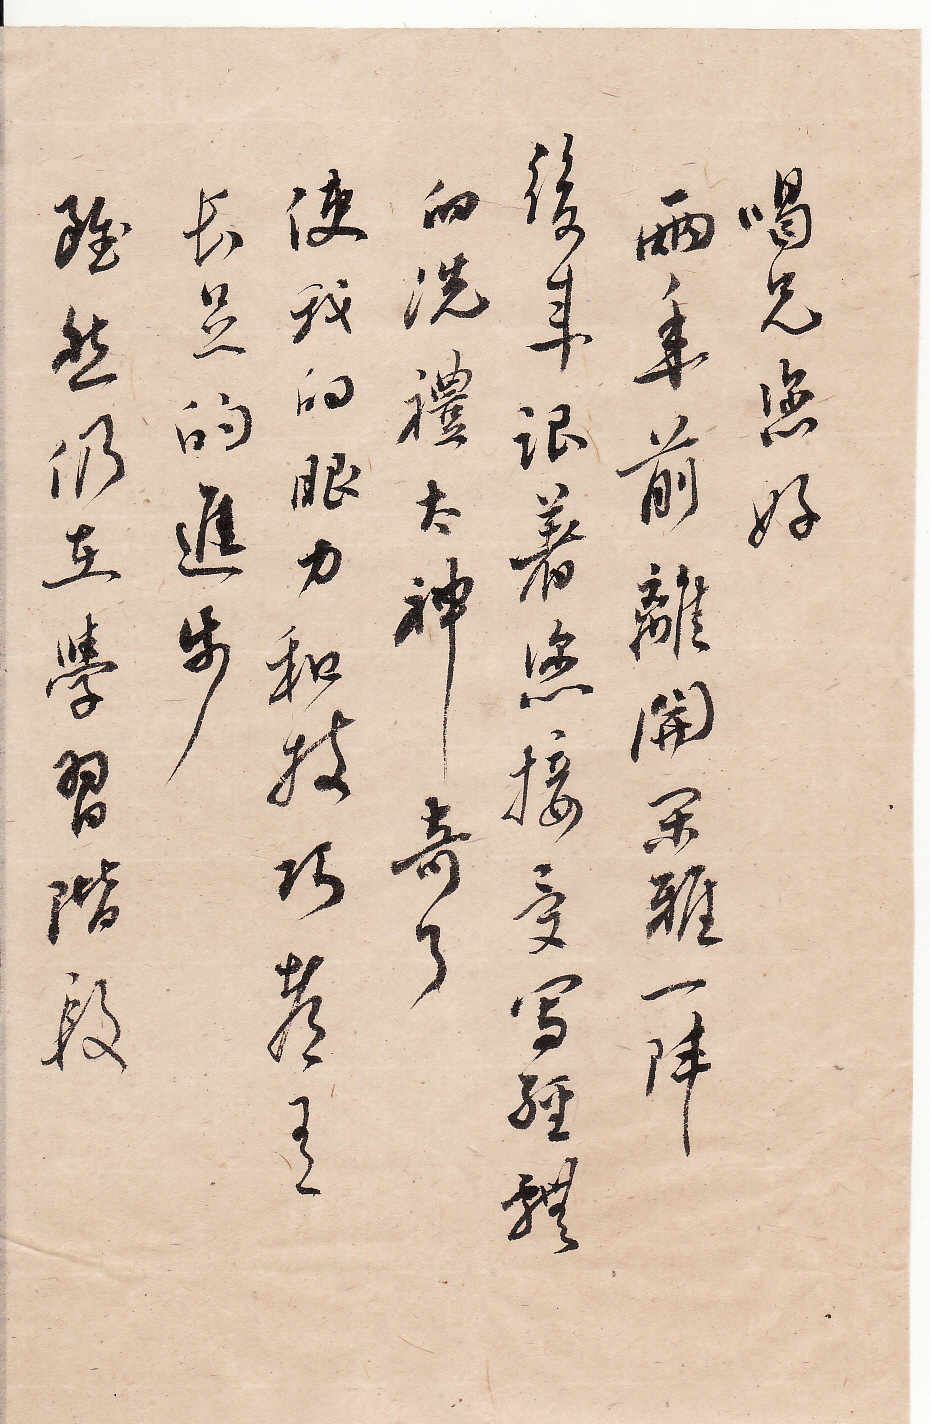 喝兄您好
兩年前離開閑雅一陣
後來跟著您接受寫經體
的洗禮太神奇了
使我的眼力和技巧都有
長足的進步
雖然仍在學習階段